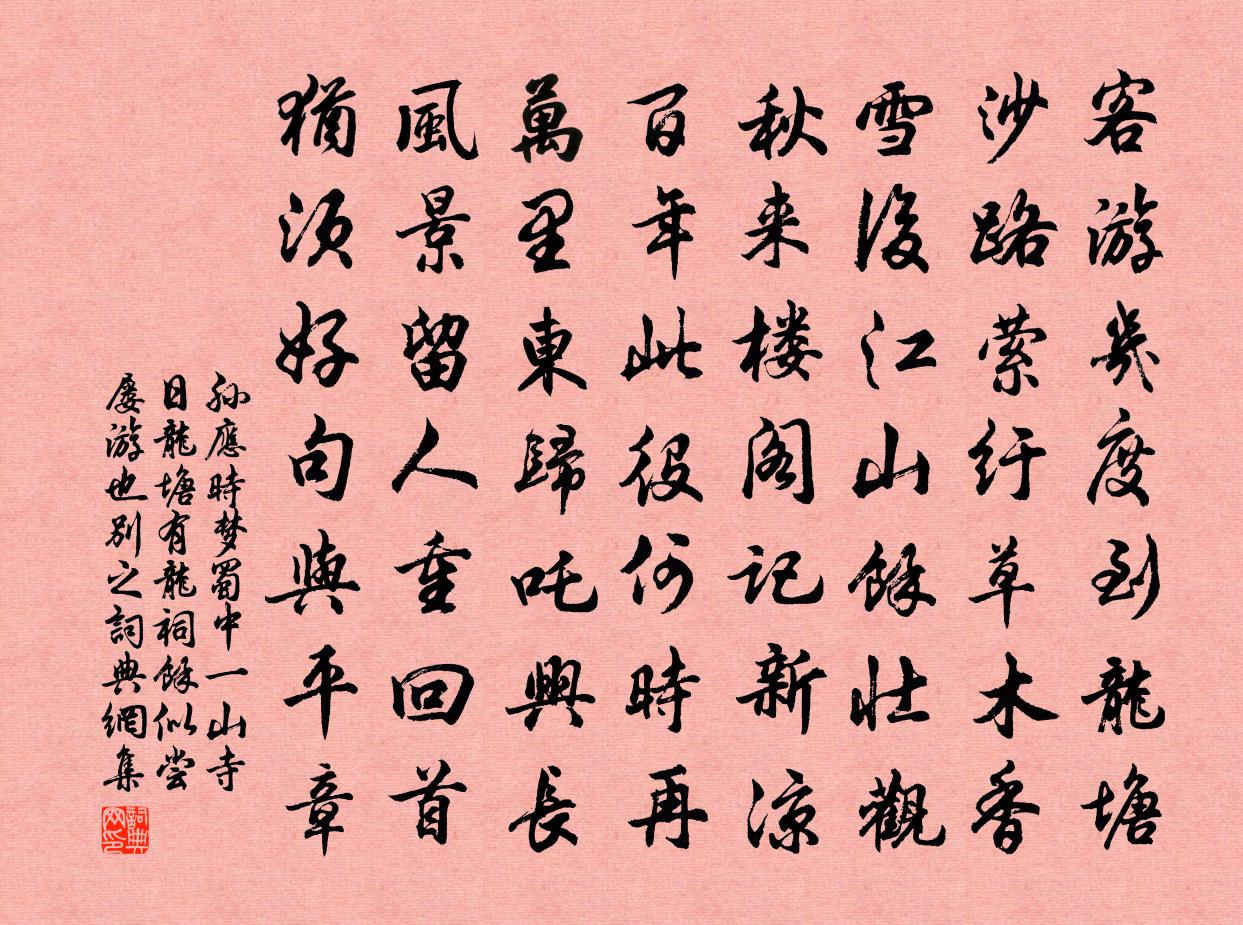 客游幾度到龍塘
沙路縈紆草木香
雪後江山餘壯觀
秋来楼阁記新涼
百年此役何時再
萬里東歸吒興長
風景留人重回首
猶須好句與平章
孙應時梦蜀中一山寺
日龍塘有龍祠餘似尝
屡游也别之詞典網集
詞典网印